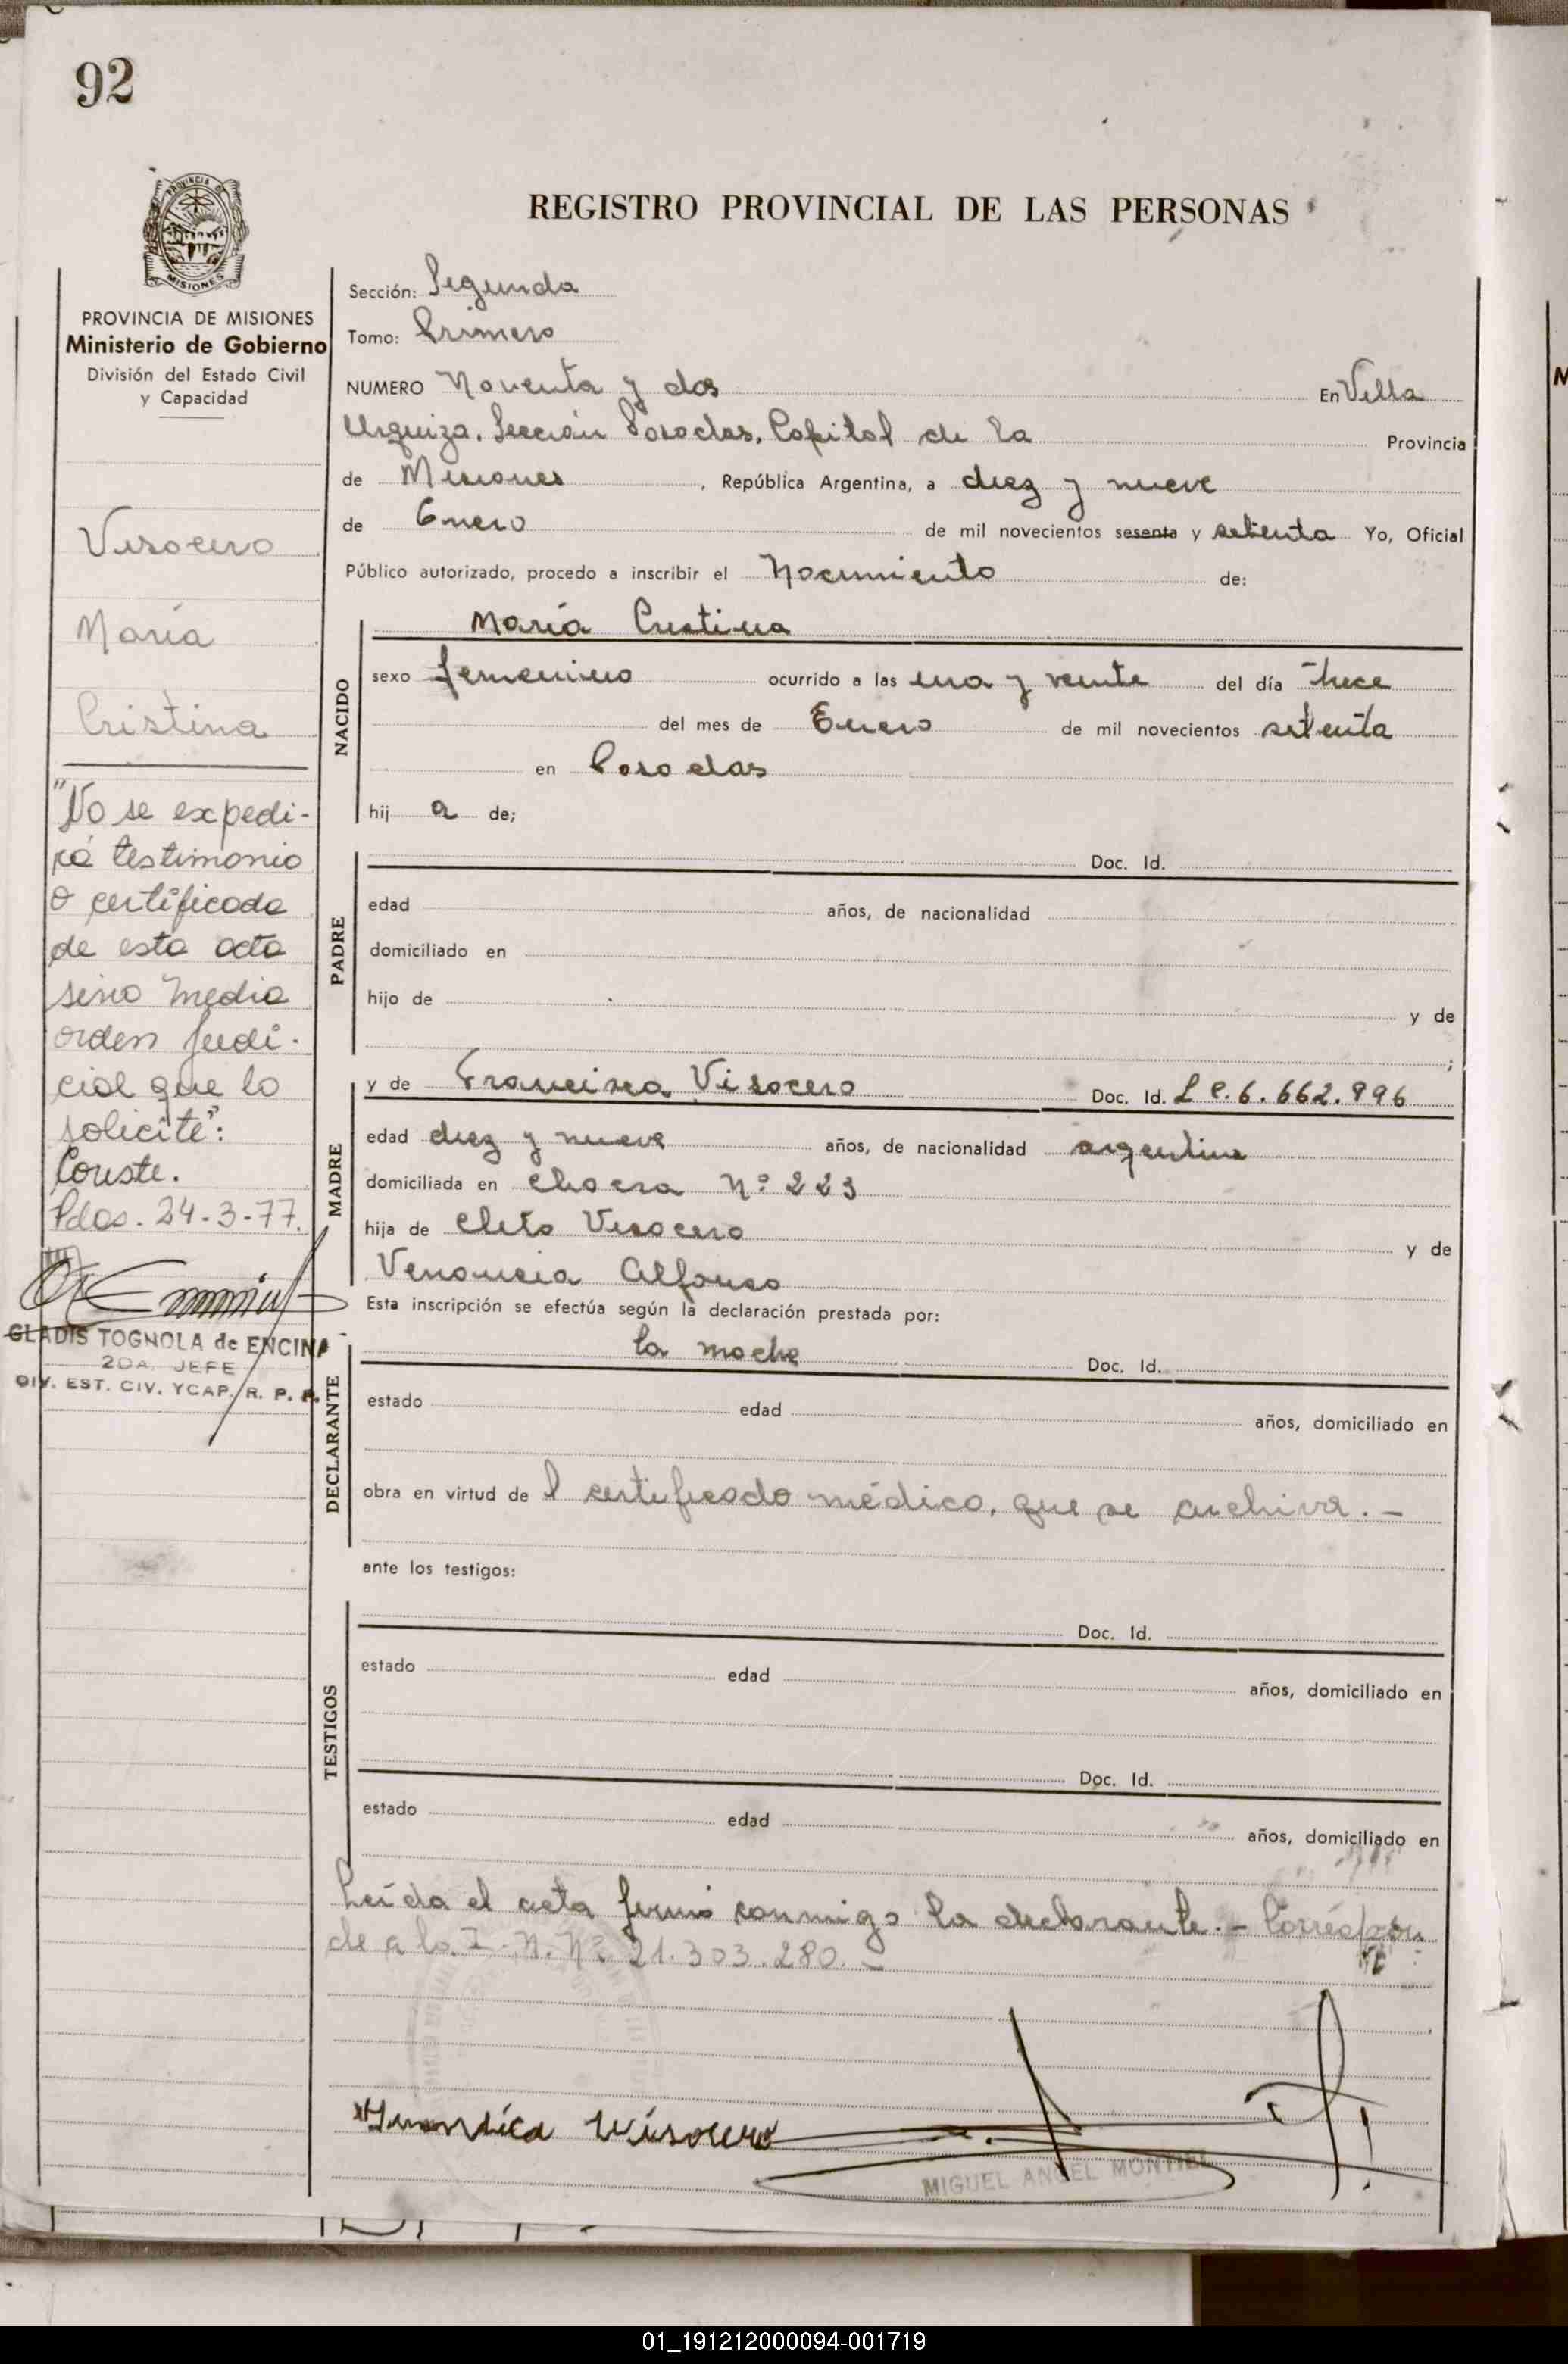 92
PROVINCIA DE
MISIONES
REGISTRO PROVINCIAL DE LAS PERSONAS
PROVINCIA DE MISIONES
Ministerio de Gobierno
División del Estado Civil
y Capacidad
Visocero
María
Cristina
"No se expedi-
rá testimonio
o certificado
de esta acta
sino medie
orden judi-
cial que lo
solicite":
Conste.
Pdas. 24-3-77.
GLADIS TOGNOLA de ENCINA
2DA. JEFE
DIV. EST. CIV. YCAP. R. P. P.
Sección: Segunda
Tomo: Primero
NUMERO Noventa y dos En Villa
Urquiza, Sección Posadas, Capital de la Provincia
de Misiones, República Argentina, a diez y nueve
de Enero de mil novecientos sesenta y setenta Yo, Oficial
Público autorizado, procedo a inscribir el Nacimiento de:
NACIDO
María Cristina
sexo femenino ocurrido a las una y veinte del día trece
del mes de Enero de mil novecientos setenta
en Posadas
hij a de;
PADRE
Doc. Id.
edad años, de nacionalidad
domiciliado en
hijo de y de
;
MADRE
y de Francisca Visocero Doc. Id. L C. 6.662.996
edad diez y nueve años, de nacionalidad argentina
domiciliada en Chacra Nº 223
hija de Cleto Visocero y de
Alfonso
Esta inscripción se efectúa según la declaración prestada por:
DECLARANTE
la madre Doc. Id.
estado edad años, domiciliado en
obra en virtud de l certificado médico, que se archiva.-
ante los testigos:
TESTIGOS
Doc. Id.
estado edad años, domiciliado en
Doc. Id.
estado edad años, domiciliado en
Leída el acta firmó conmigo la declarante.- Correspon
de a la I. N. Nº 21.303.280.-
Visocero
MIGUEL ANGEL MONTIEL
01_191212000094-001719